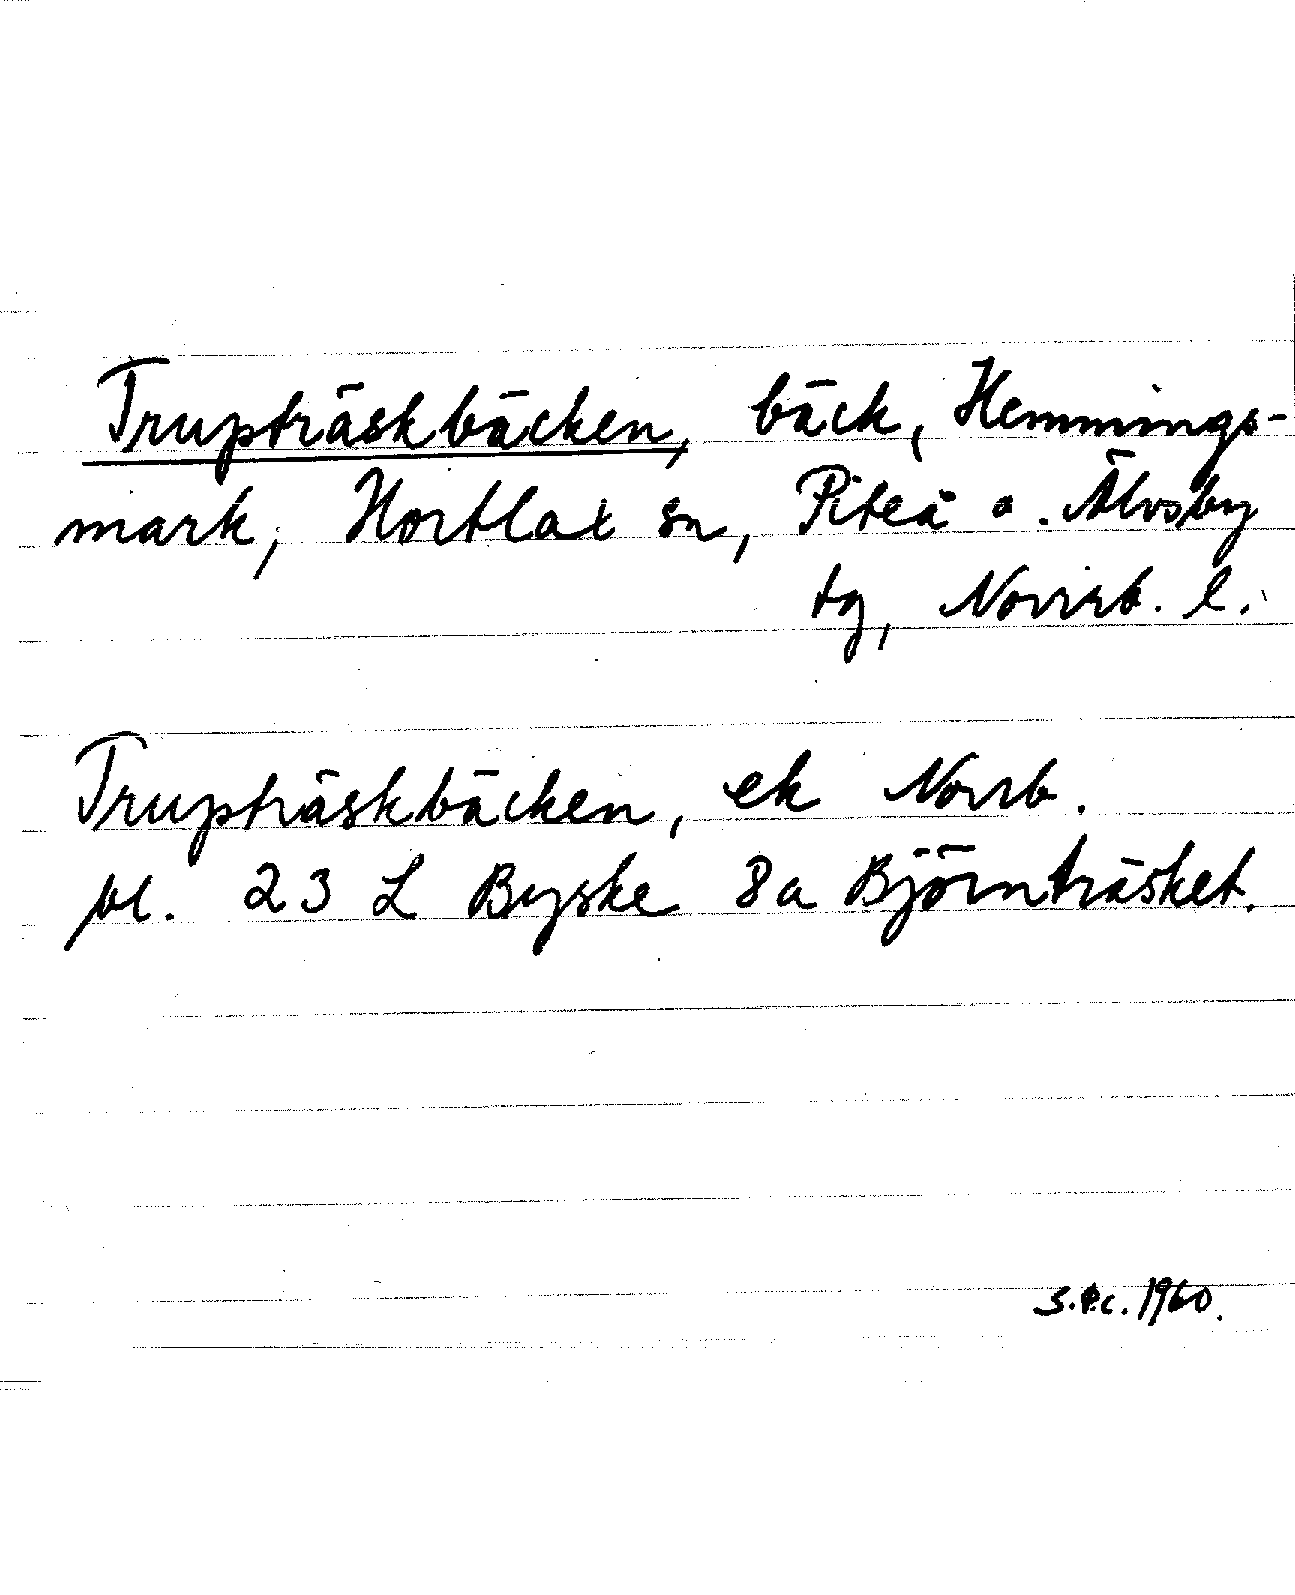 Trupträskbäcken, bäck, Hemmings-
mark, Hortlax sn, Piteå o. Älvsby
tg, Norrb. l.
Trupträskbäcken, ek Norrb.
bl. 23 L Byske 8a Björnträsket.
1960.